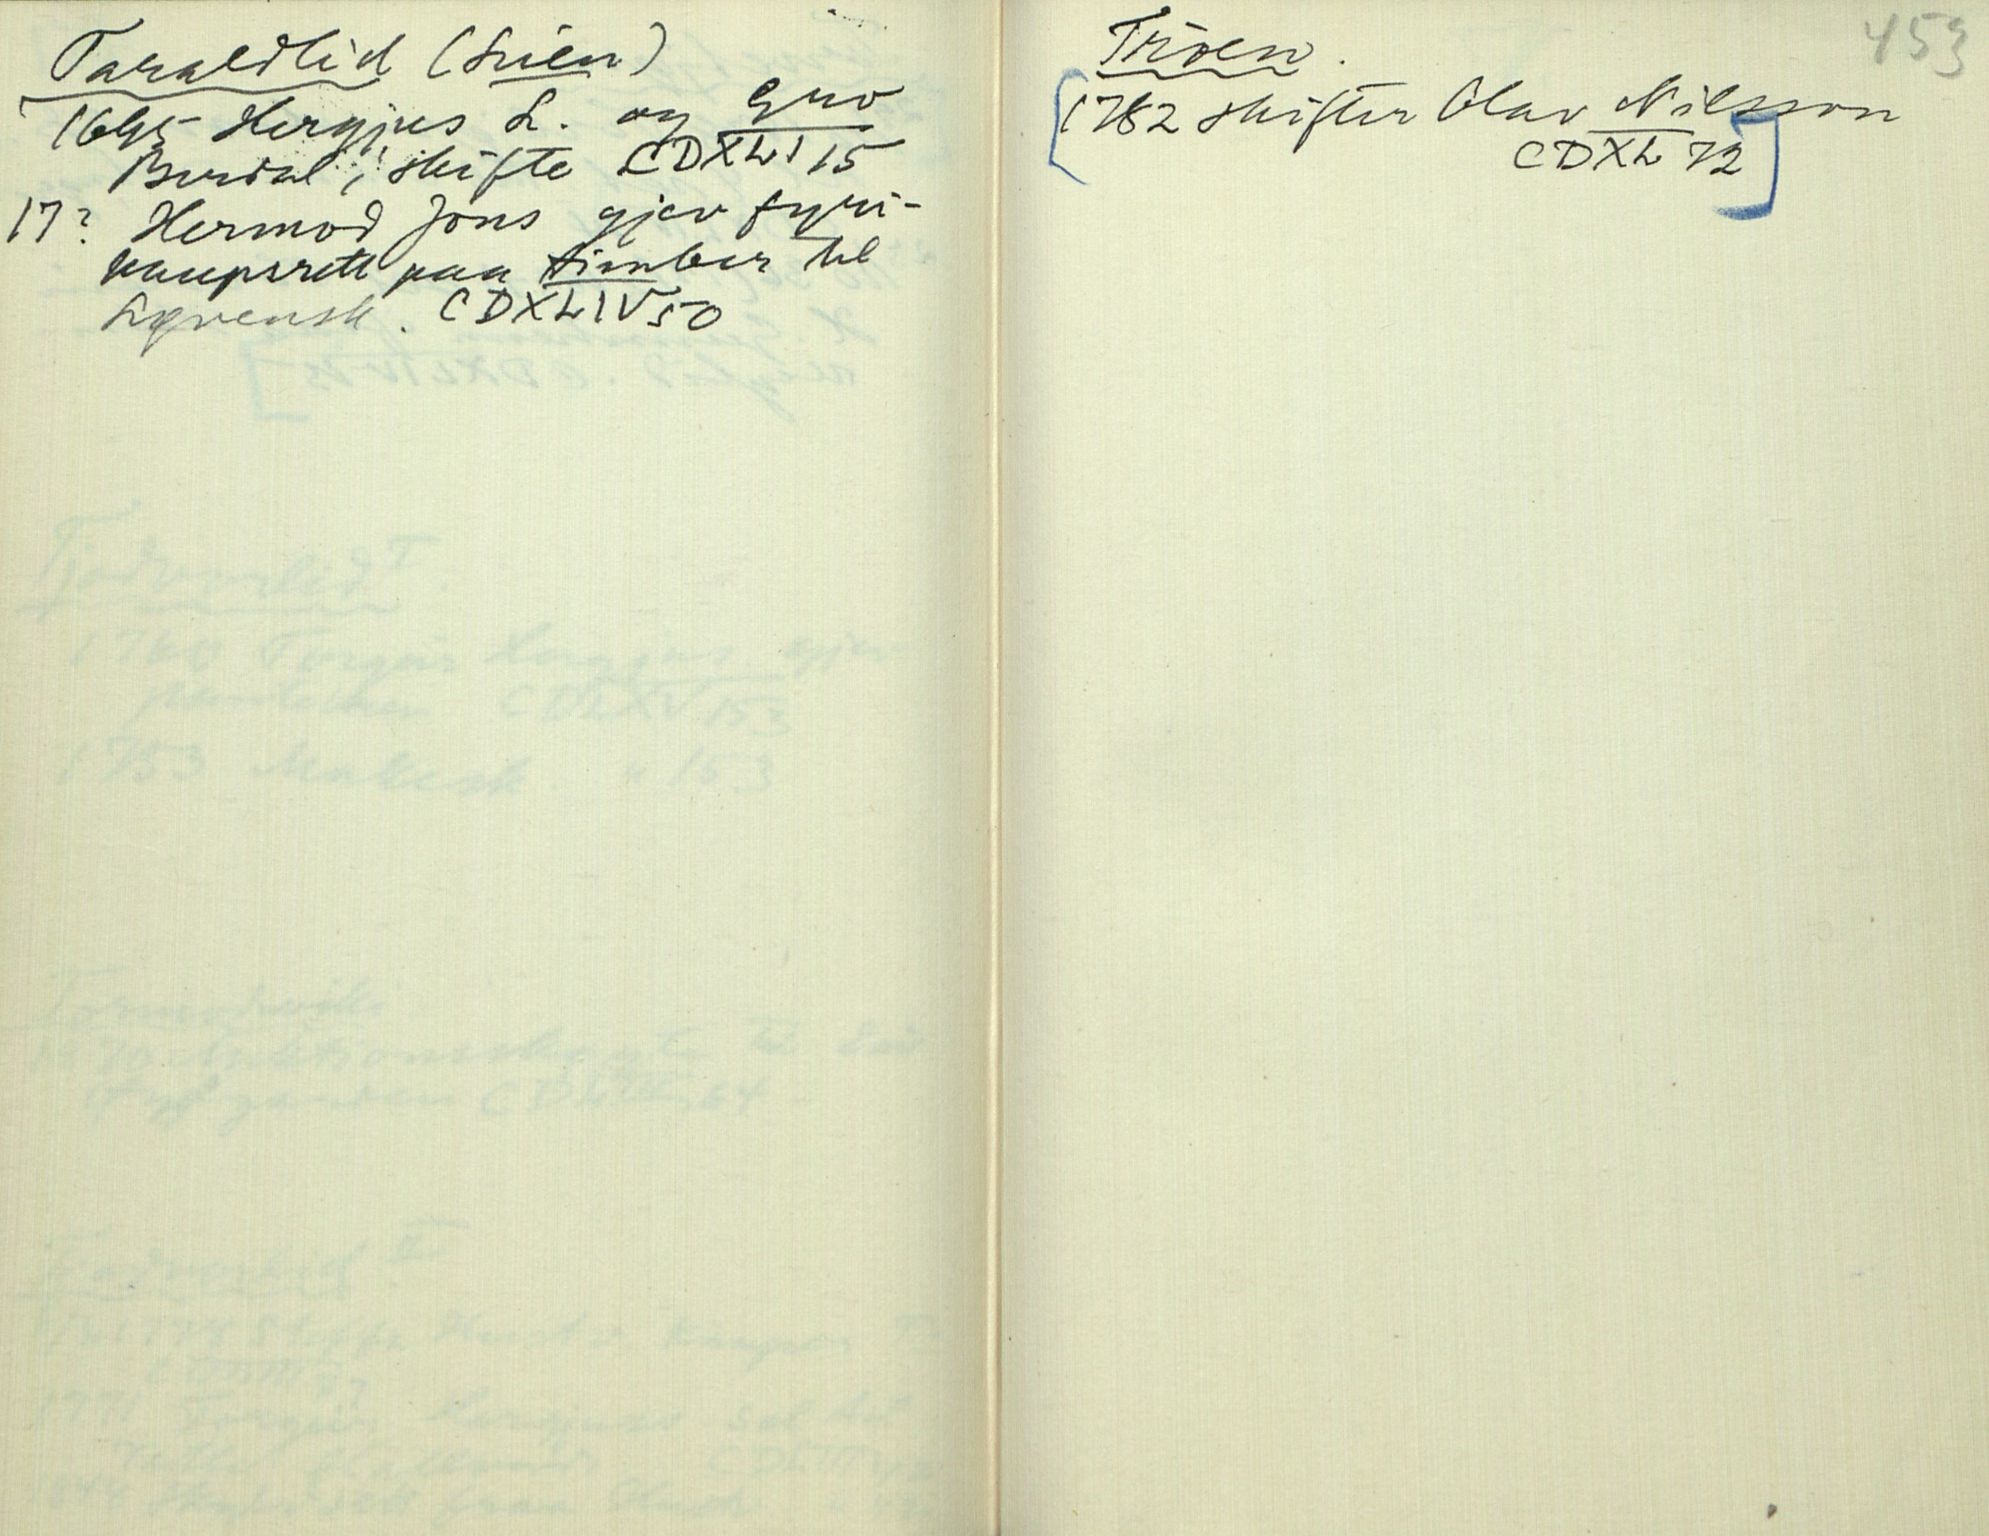 Taraldlid (Lien)
1695 Hergjus L. og Gro
Burdal, skifte CDXLI 15
17? Hermod Jons gjev fyri-
kaupsrett paa timber til
Løvensk. CDXLIV 50
Tröen.
453
[1782 skifter Olav Nilsson
CDXL 72]